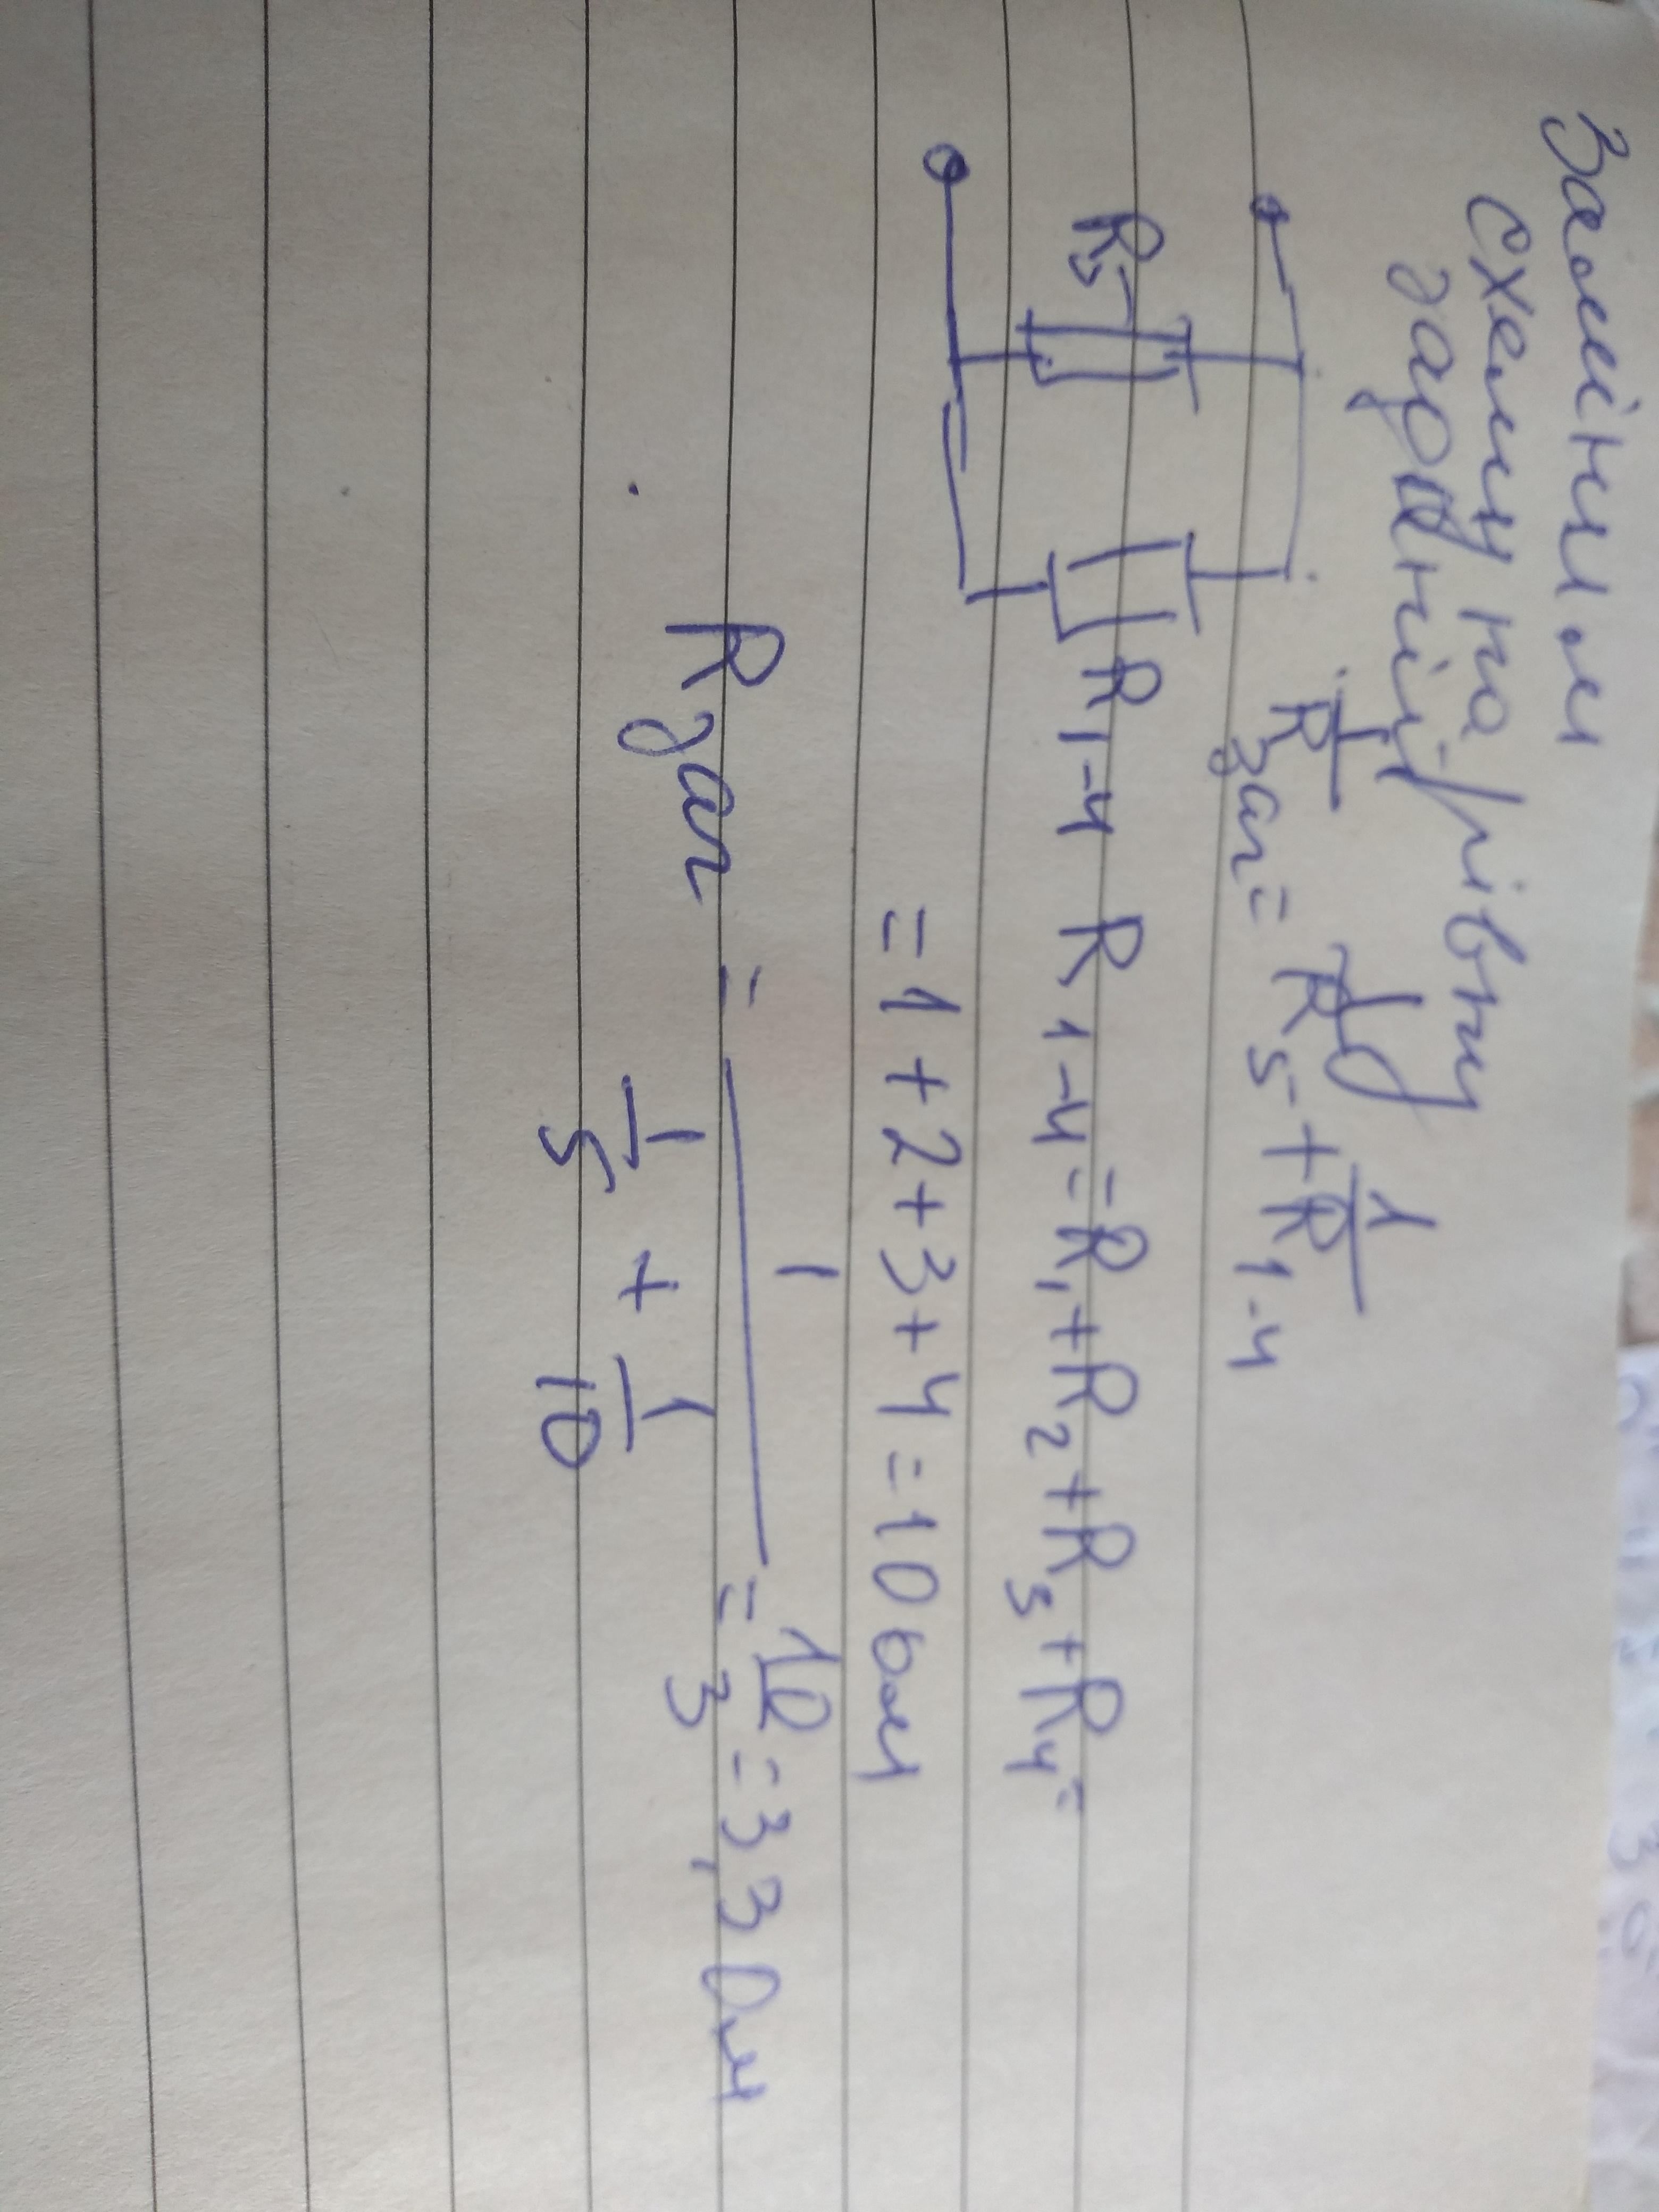 Замінимо
схему на рівну
1/Rзаг = 1/R5 + 1/R1-4
R5
R1-4 R1-4 = R1 + R2 + R3 + R4 =
= 1 + 2 + 3 + 4 = 10 ом
Rзаг = 1/(1/5 + 1/10) = 10/3 = 3,3 Ом